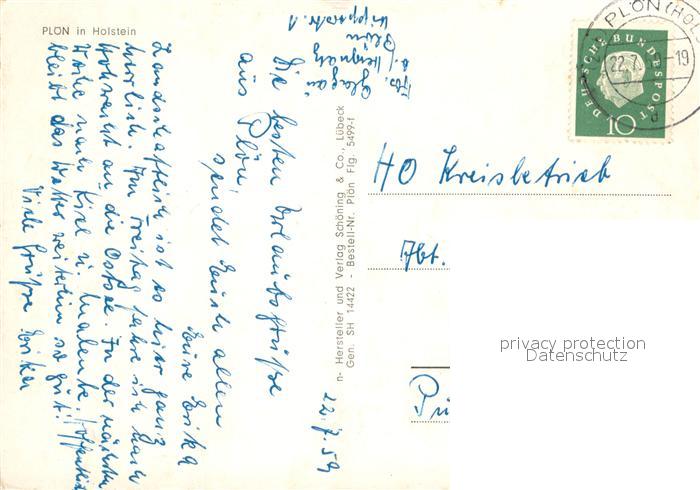 PLÖN in Holstein
Die besten Urlaubsgrüße
aus Plön
sendet Euch allen
Eure Erika
22.7.59
Landschaftlich ist es hier ganz
herrlich. Am Freitag fahre ich nach
Hohwacht an die Ostsee. In der nächsten
Woche nach Kiel u. Malente. Hoffentlich
bleibt das Wetter weiterhin so gut!
Viele Grüße Erika
Plön
n- Hersteller und Verlag Schöning & Co., Lübeck
Gen. SH 14422 - Bestell-Nr. Plön Flg. 5499-f
PLÖN (HOL
22.7.
-19
d
DEUTSCHE BUNDESPOST
10
HO Kreisbetrieb
Abt.
privacy protection
Datenschutz